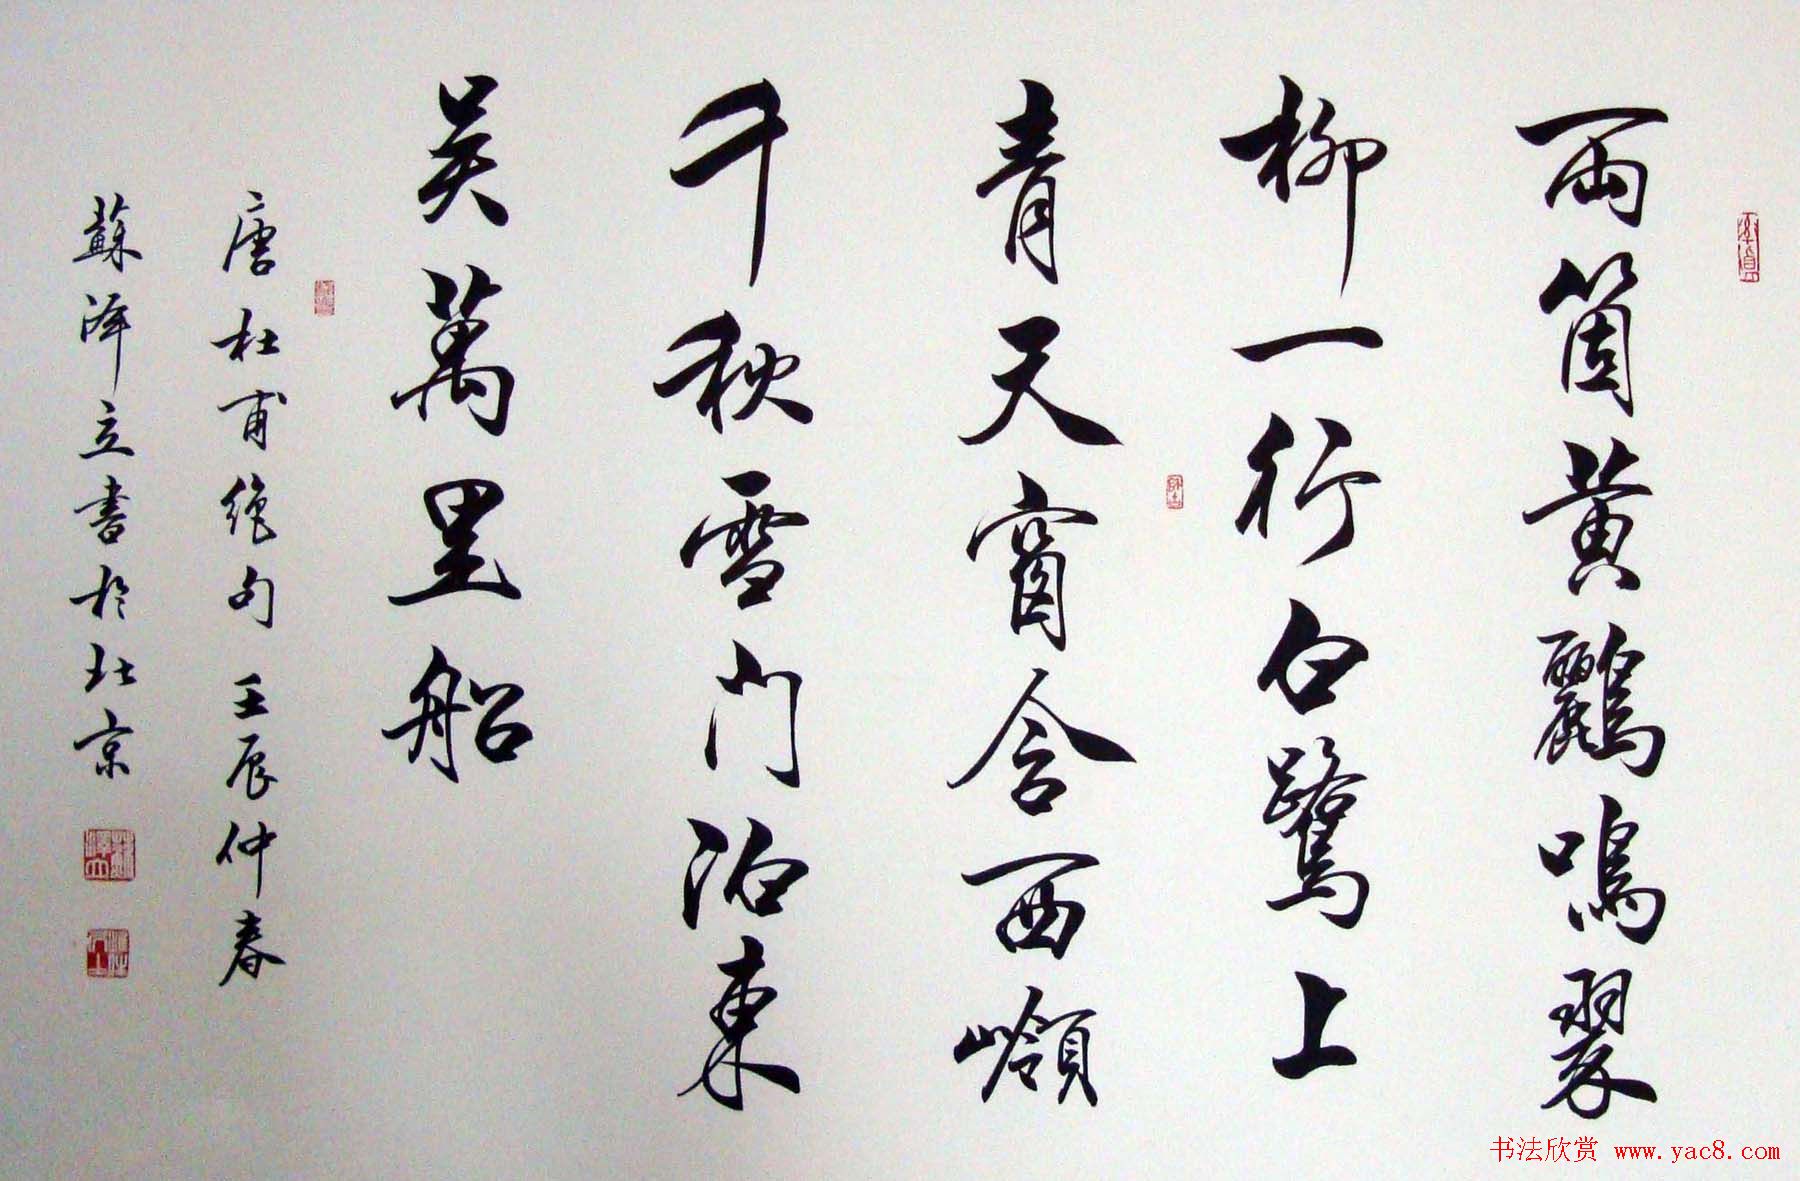 兩箇黃鸝鳴翠
柳一行白鷺上
青天窗含西嶺
千秋雪門泊東
吳萬里船
唐杜甫絕句壬辰仲春
蘇澤立書於北京
书法欣赏 www.yac8.com